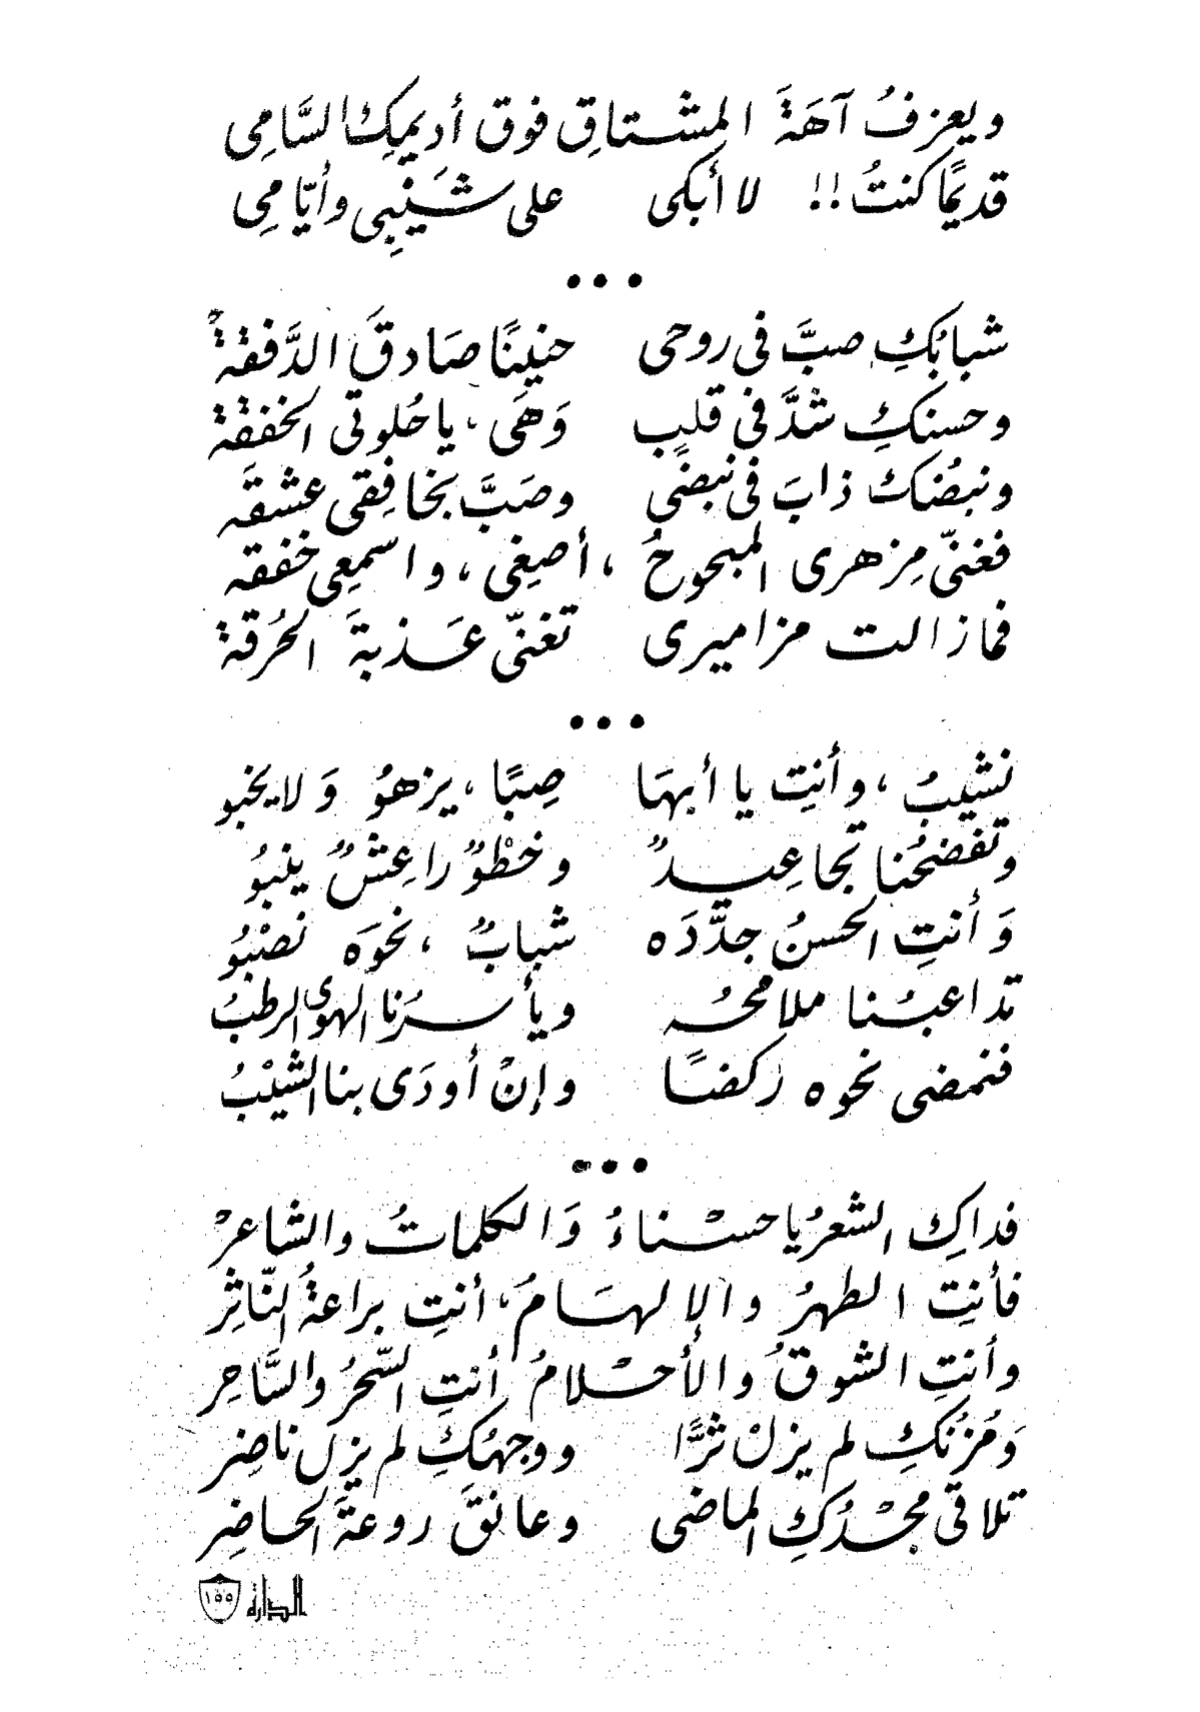 ويعزفُ آهَةَ المشتاقِ فوق أديمِكِ السَّامِى
قديمًا كنتُ !! لا أبكى على شَيْبِى وأيّامِى
•••
شبابُكِ صبَّ فى روحى حنينًا صَادقَ الدَّفقةْ
وحسنكِ شدَّ فى قلبٍ وَهَى ، يا حُلوتى الخفقة
ونبضُك ذابَ فى نبضى وصَبَّ بخافِقى عشقَه
فغنّى مِزهرى المبحوحُ ، أصغِى ، واسمعِى خفقه
فمازالت مزاميرى تغنّى عَذبةَ الحُرقة
•••
نشيبُ ، وأنتِ يا أبهَا صِبًا ، يزهوُ وَلا يخبو
وتفضحُنا تجاعِيدٌ وخطْوٌ راعِشٌ ينبُو
وَأنتِ الحسنُ جدَّدَه شبابٌ ، نحوَه نصْبُو
تداعبُنا ملامحُه ويأسرُنا الهوى الرطبُ
فنمضى نحوه ركضًا وإنْ أودَى بنا الشيْبُ
•••
فداكِ الشعرُ يا حسْناءُ وَالكلماتُ والشاعرْ
فأنتِ الطهرُ والإلهَامُ ، أنتِ براعةُ النّاثِر
وأنتِ الشوقُ والأحْلامُ أنتِ السّحرُ والسَّاحِر
وَمُزنُكِ لم يزلْ ثرًّا ووجهُكِ لم يزل ناضِر
تلاقى مجْدُكِ الماضى وعانقَ روعةَ الحاضِر
الدارة ١٥٥